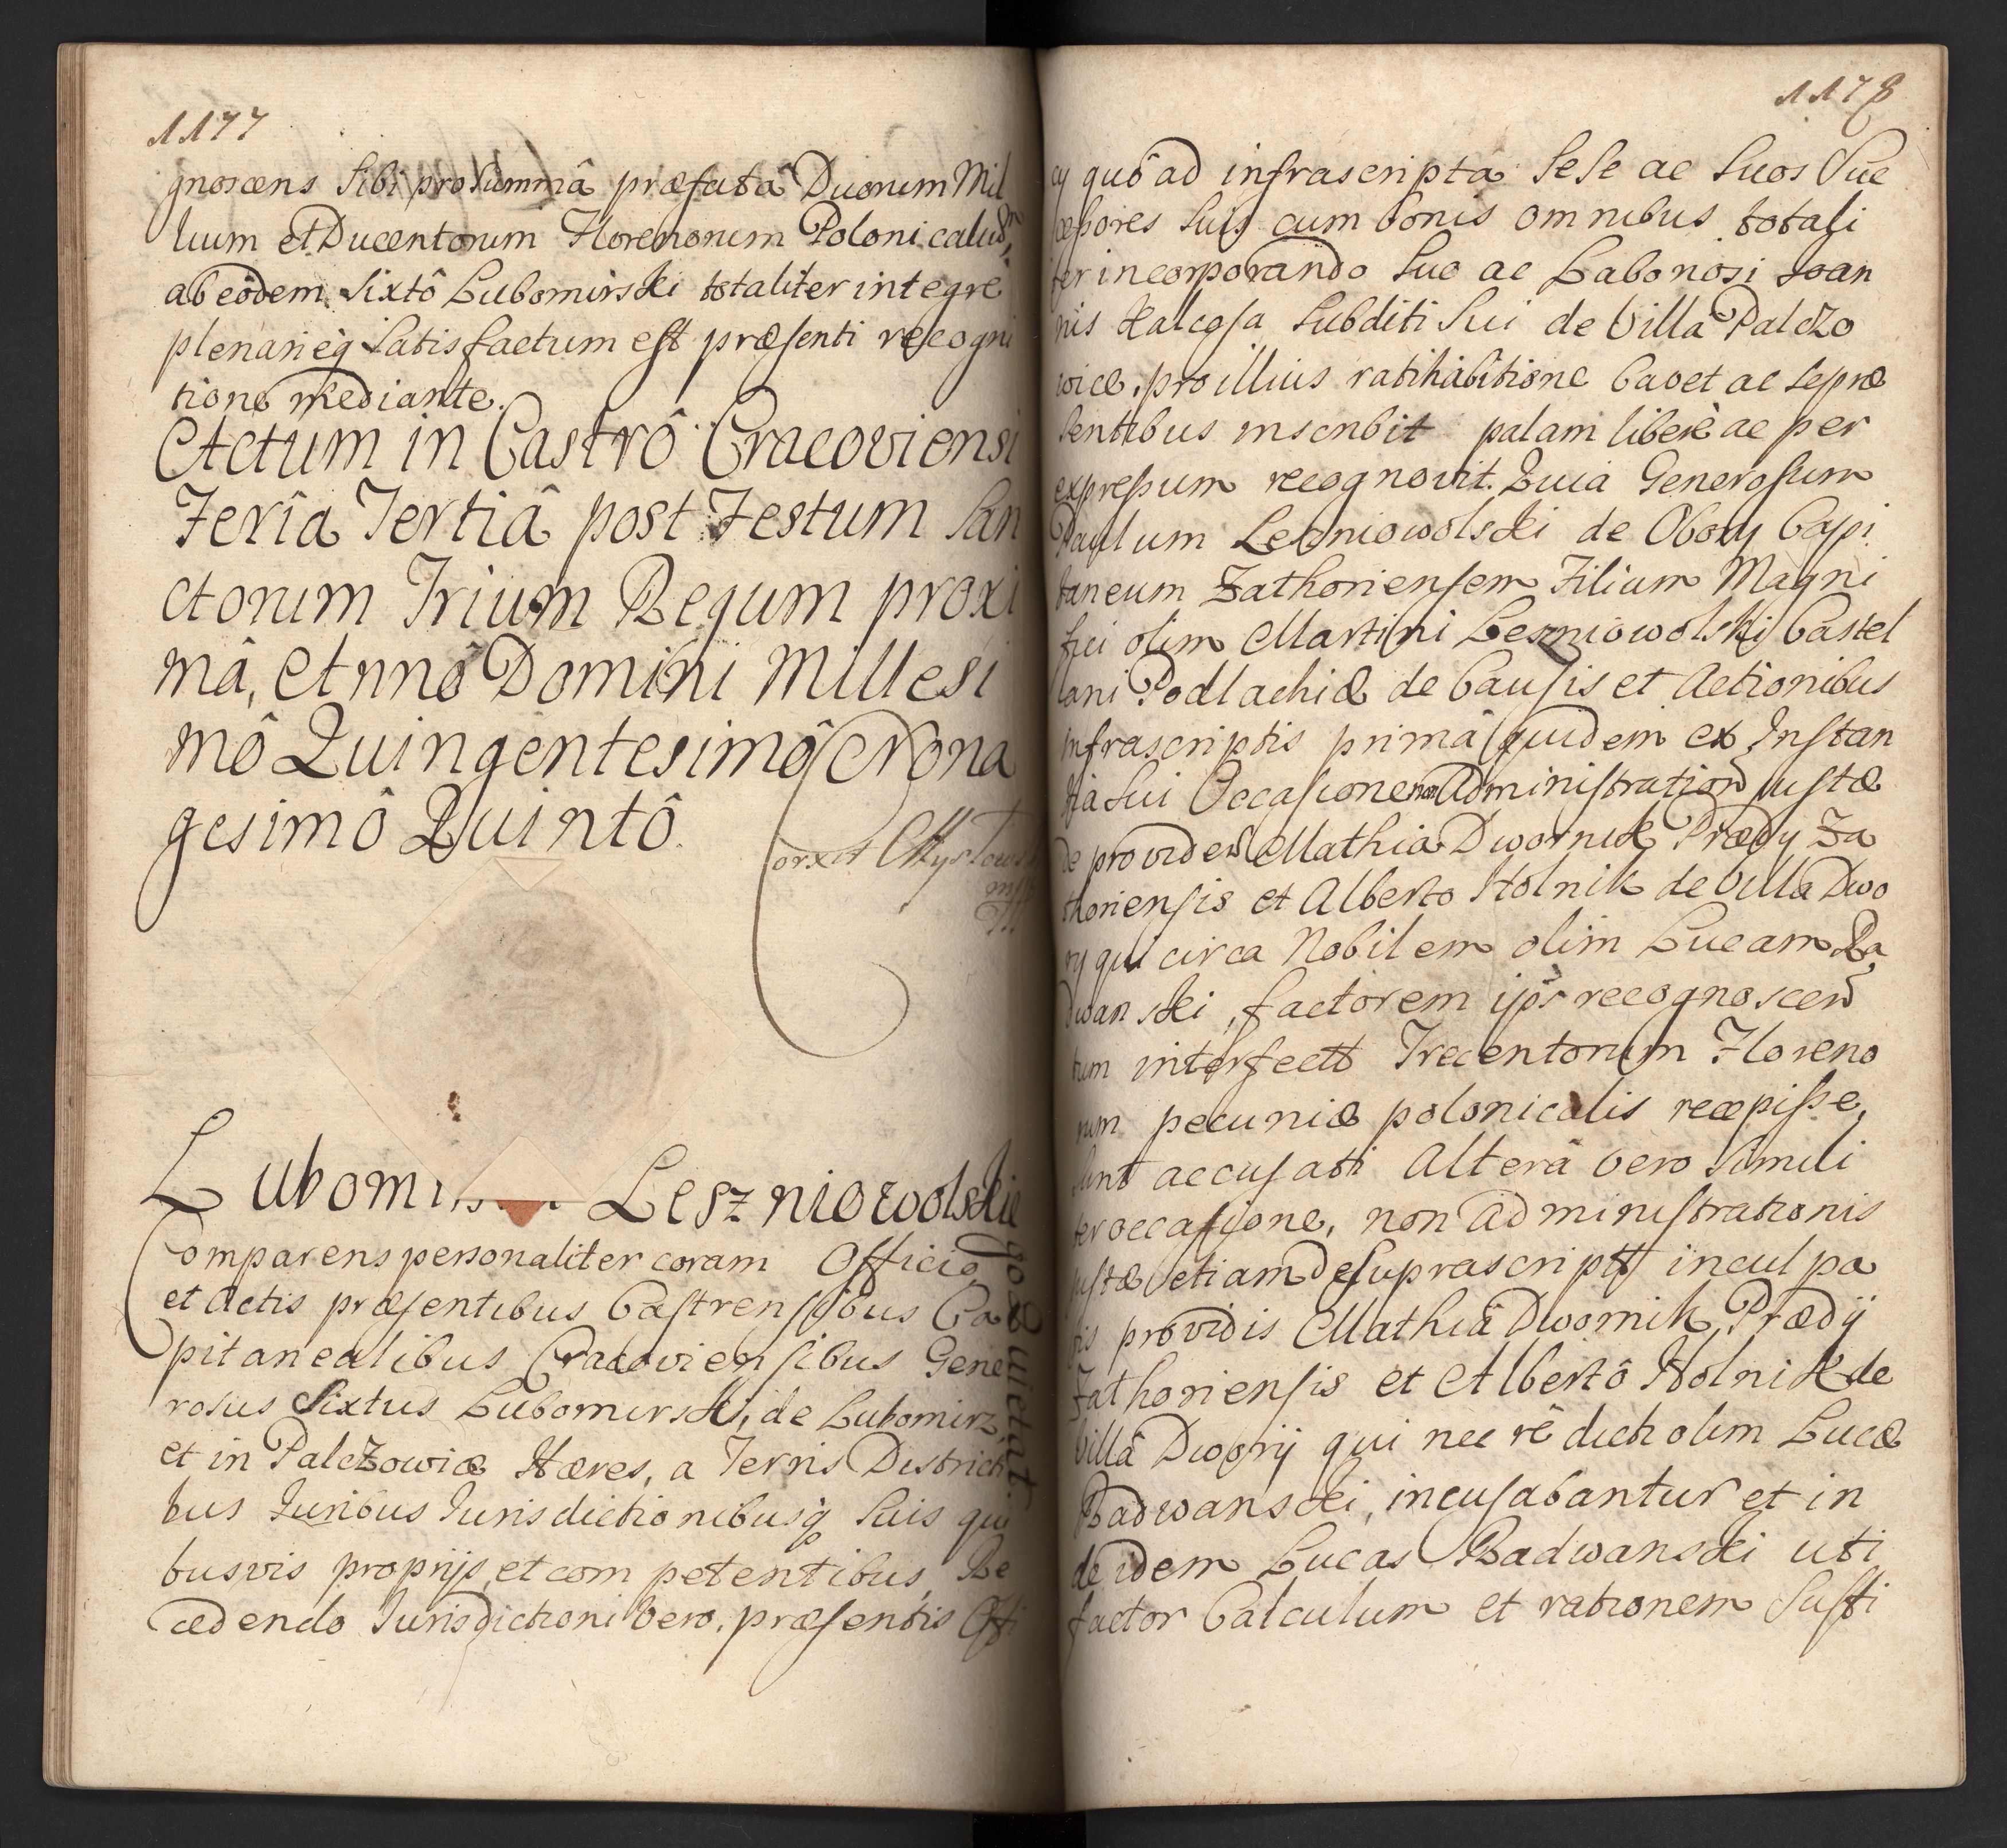 1177
gnoscens Sibi pro Summâ præfatâ Duorum Mil
lium et Ducentorum Florenorum Polonicaliũ,
ab eôdem Sixtô Lubomirski totaliter integrè
plenarieq̃ Satisfactum est præsenti recogni
tione mediante.
Actum in Castrô Cracoviensi
Feriâ Tertiâ post Festum San
ctorum Trium Regum proxi
mâ, Annô Domini Millesi
mô Quingentesimô Nona
gesimô Quintô.
Lubomirski Leszniowolskie
go Quietat.
Comparens personaliter coram Officio
et Actis præsentibus Castrensibus Ca
pitanealibus Cracoviensibus Gene
rosus Sixtus Lubomirski, de Lubomirz,
et in Palczowicæ Hæres, a Terris Districti
bus Iuribus Iurisdictionibusq̃ Suis qui
busvis proprijs, et competentibus, Re
cedendo Iurisdictioni Vero, præsentis Offi
1178
cij quô ad infrascripta SeSe ac Suos Suc
cessores Suis cum bonis omnibus totali
ter incorporando Suo ac Labonosi Ioan
nis Kalcosa Subditi Sui de Villa Palczo
wicæ, pro illius ratihabitione Cavet ac Se præ
sentibus inscribit palam liberè ac per
expressum recognovit. Quia Generosum
Paulum Lesniowolski de Obory Capi
taneum Zathoriensem Filium Magni
fici olim Martini Leszniowolski Castel
lani Podlachiæ de Causis et Actionibus
infrascriptis primâ quidem ex Instan
tia Sui Occasione non Administration justæ
de provideñ Mathia Dwornik Prædij Za
thoriensis et Alberto Holnik de Villa Dwo
ry qui circa Nobilem olim Lucam Ra
dwanski, factorem ipsˢ recognoscen
tum interfectt Trecentorum Floreno
rum pecuniæ polonicalis recepisse,
sunt accusati Alterâ vero Simili
ter occasione, non administrationis
justæ etiam de Suprascriptt inculpa
tis providis Mathiâ Dwornik Prædij
Zathoriensis et Albertô Holnik de
Villâ Dworij qui nec rê dicti olim Lucæ
Radwanski, incusabantur et in
de idem Lucas Radwanski uti
factor Calculum et rationem Suffi